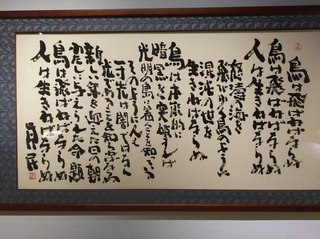 鳥は飛ばねばならぬ
鳥は飛ばねばならぬ
人は生きねばならぬ
怒濤の海を
飛びゆく鳥のように
混沌の世を
生きねばならぬ
鳥は本能的に
暗黒を突破すれば
光明の島に着くことを知っている
そのように人も
一寸先は闇ではなく
光であることを知らねばならぬ
新しい年を迎えた日の朝
わたしに与えられた命題
鳥は飛ばねばならぬ
人は生きねばならぬ
真民